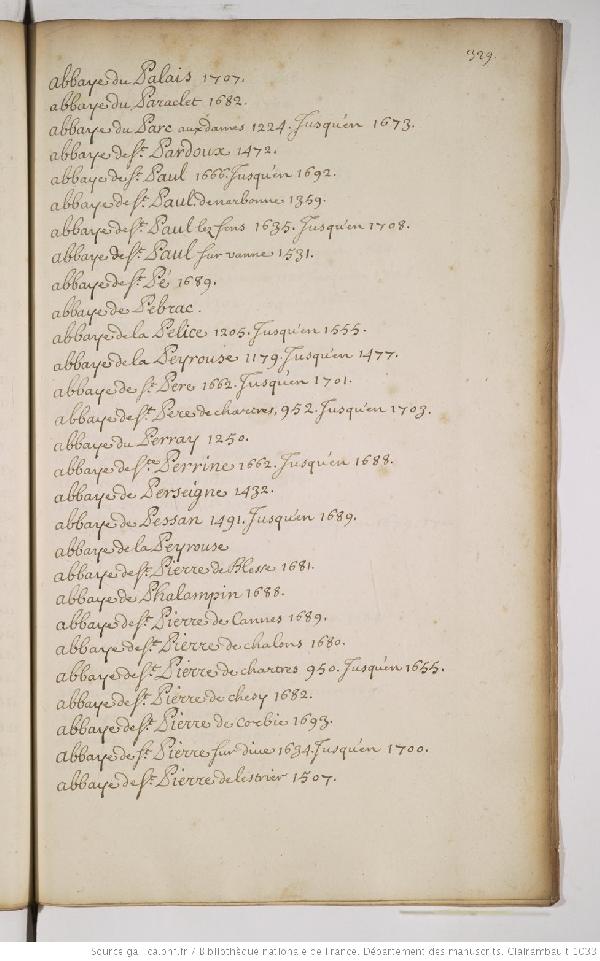 329.
abbaye du Palais 1707.
abbaye du Paraclet 1682.
abbaye du Parc aux Dames 1224. Jusqu'en 1673.
abbaye de St. Pardoux 1472.
abbaye de St. Paul 1666. Jusqu'en 1692.
abbaye de St. Paul de narbonne 1359.
abbaye de St. Paul lez sens 1635. Jusqu'en 1708.
abbaye de St. Paul sur vanne 1531.
abbaye de St. Pé 1689.
abbaye de Pebrac.
abbaye de la Pelice 1205. Jusqu'en 1555.
abbaye de la Peyrouse 1179. Jusqu'en 1477.
abbaye de St. Pere 1662. Jusqu'en 1701.
abbaye de St. Pere de chartres, 952. Jusqu'en 1703.
abbaye du Perray 1250.
abbaye de Ste. Perrine 1662. Jusqu'en 1688.
abbaye de Perseigne 1432.
abbaye de Pessan 1491. Jusqu'en 1689.
abbaye de la Peyrouse
abbaye de St. Pierre de Blesse 1681.
abbaye de Phalampin 1688.
abbaye de St. Pierre de Cannes 1689.
abbaye de St. Pierre de chalons 1680.
abbaye de St. Pierre de chartres 950. Jusqu'en 1655.
abbaye de St. Pierre de chesy 1682.
abbaye de St. Pierre de Corbie 1693.
abbaye de St. Pierre sur diue 1634. Jusqu'en 1700.
abbaye de St. Pierre de lestrier 1507.
Source gallica.bnf.fr / Bibliothèque nationale de France. Département des manuscrits. Clairambault 1033